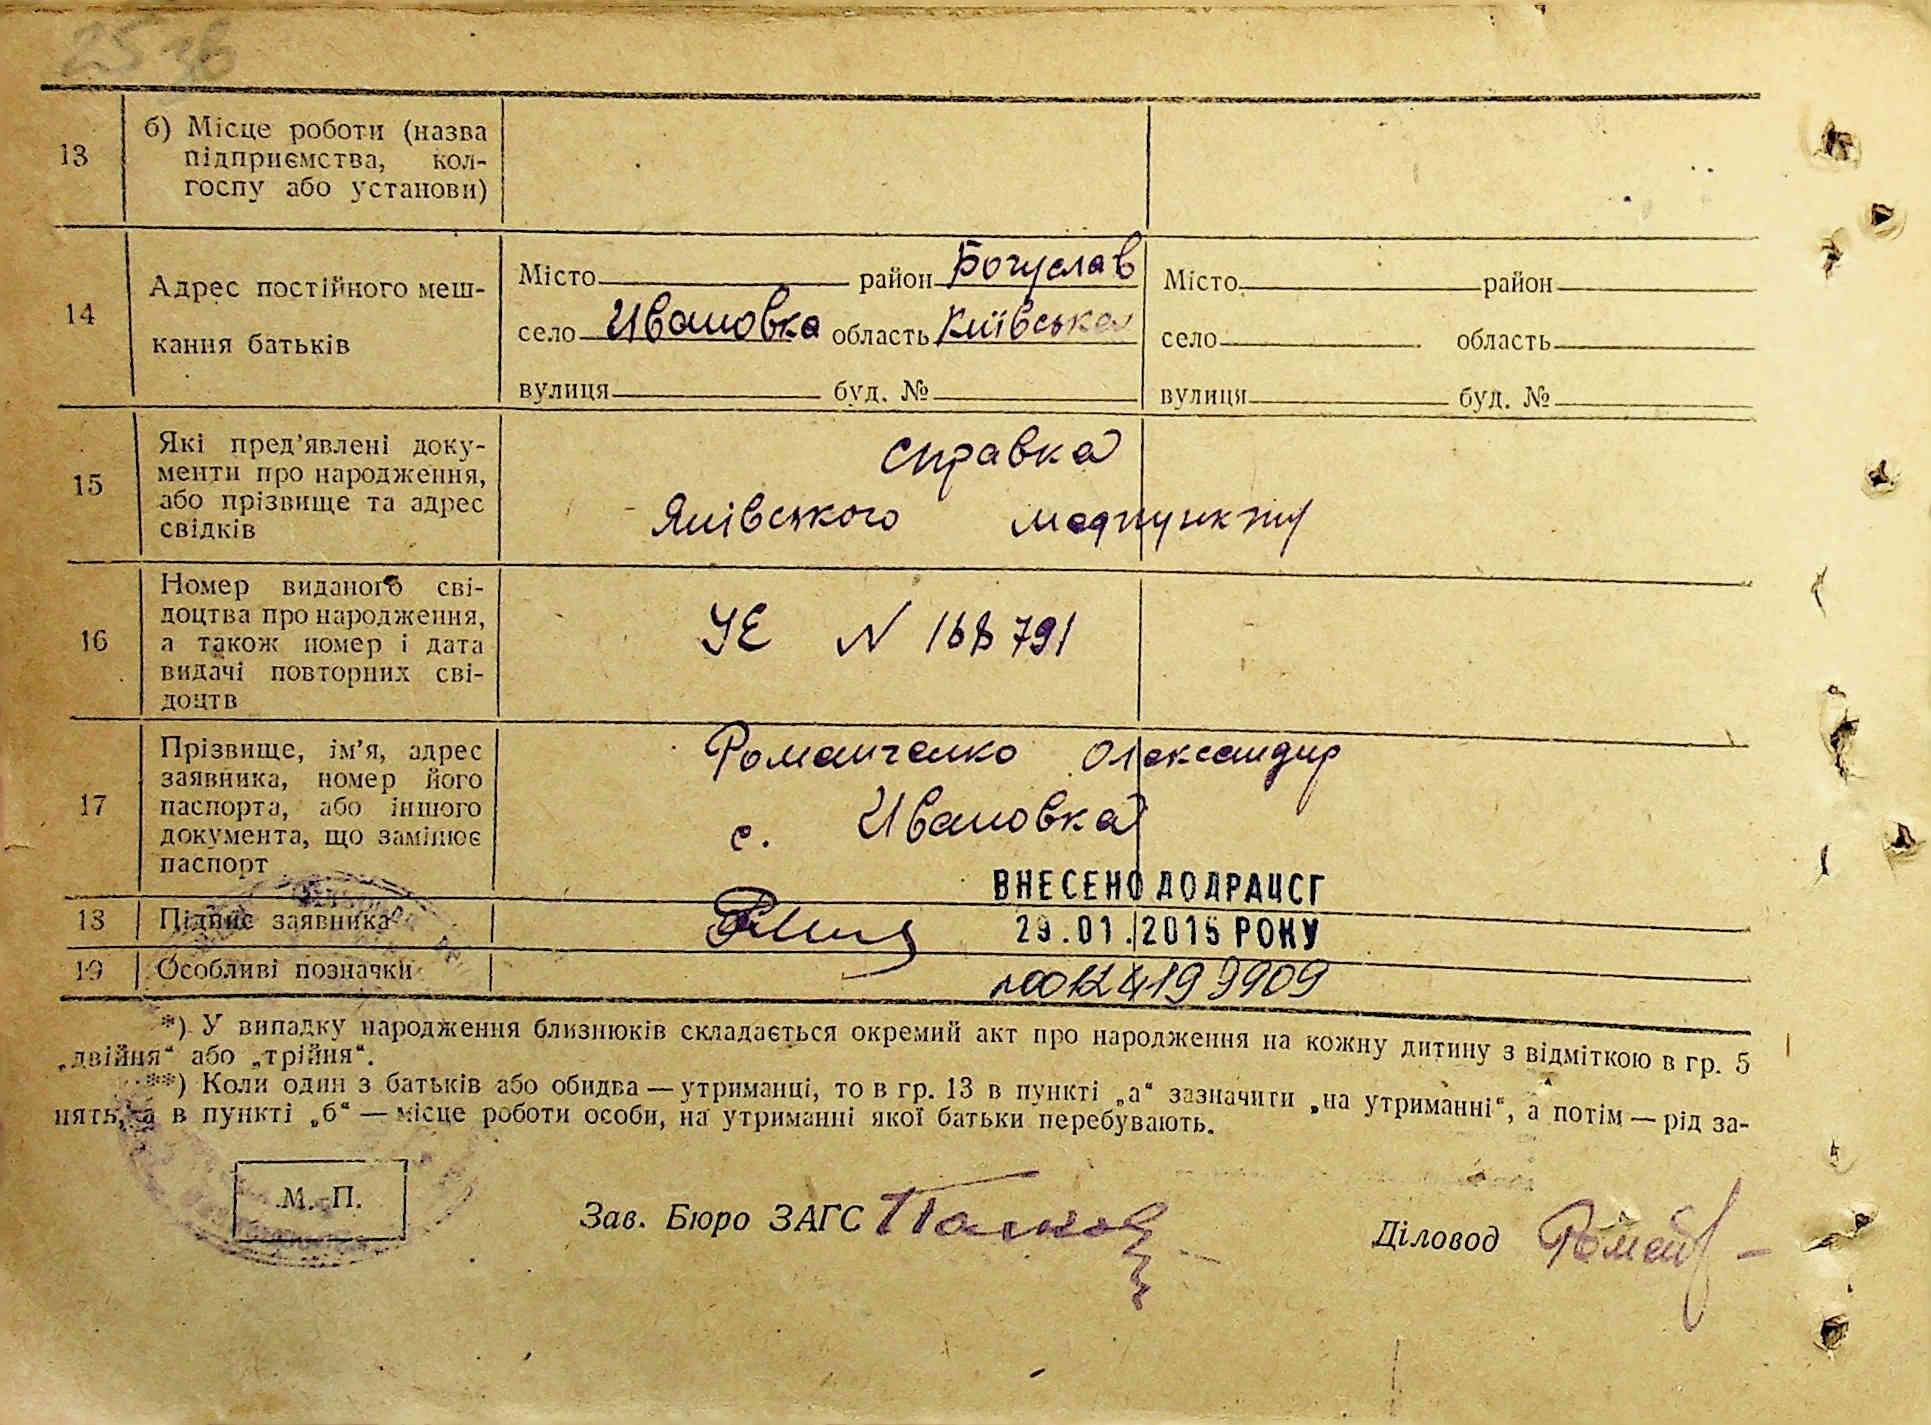 25 зв
13
б) Місце роботи (назва
підприємства, кол-
госпу або установи)
14
Адрес постійного меш-
кання батьків
Місто район Богуслав
село Ивановка область Київська
вулиця буд. №
Місто район
село область
вулиця буд. №
15
Які пред’явлені доку-
менти про народження,
або прізвище та адрес
свідків
справка
Янівського медпункту
16
Номер виданого сві-
доцтва про народження,
а також номер і дата
видачі повторних сві-
доцтв
УЕ N 168791
17
Прізвище, ім’я, адрес
заявника, номер його
паспорта, або іншого
документа, що замінює
паспорт
Романченко Олександр
с. Ивановка
ВНЕСЕНО ДО ДРАЦСГ
29.01.2015 РОКУ
18 Підпис заявника
19 Особливі позначки
№00124199909
*) У випадку народження близнюків складається окремий акт про народження на кожну дитину з відміткою в гр. 5
„двійня“ або „трійня“.
**) Коли один з батьків або обидва — утриманці, то в гр. 13 в пункті „а“ зазначити „на утриманні“, а потім — рід за-
нять, а в пункті „б“ — місце роботи особи, на утриманні якої батьки перебувають.
М. П.
Зав. Бюро ЗАГС
Діловод